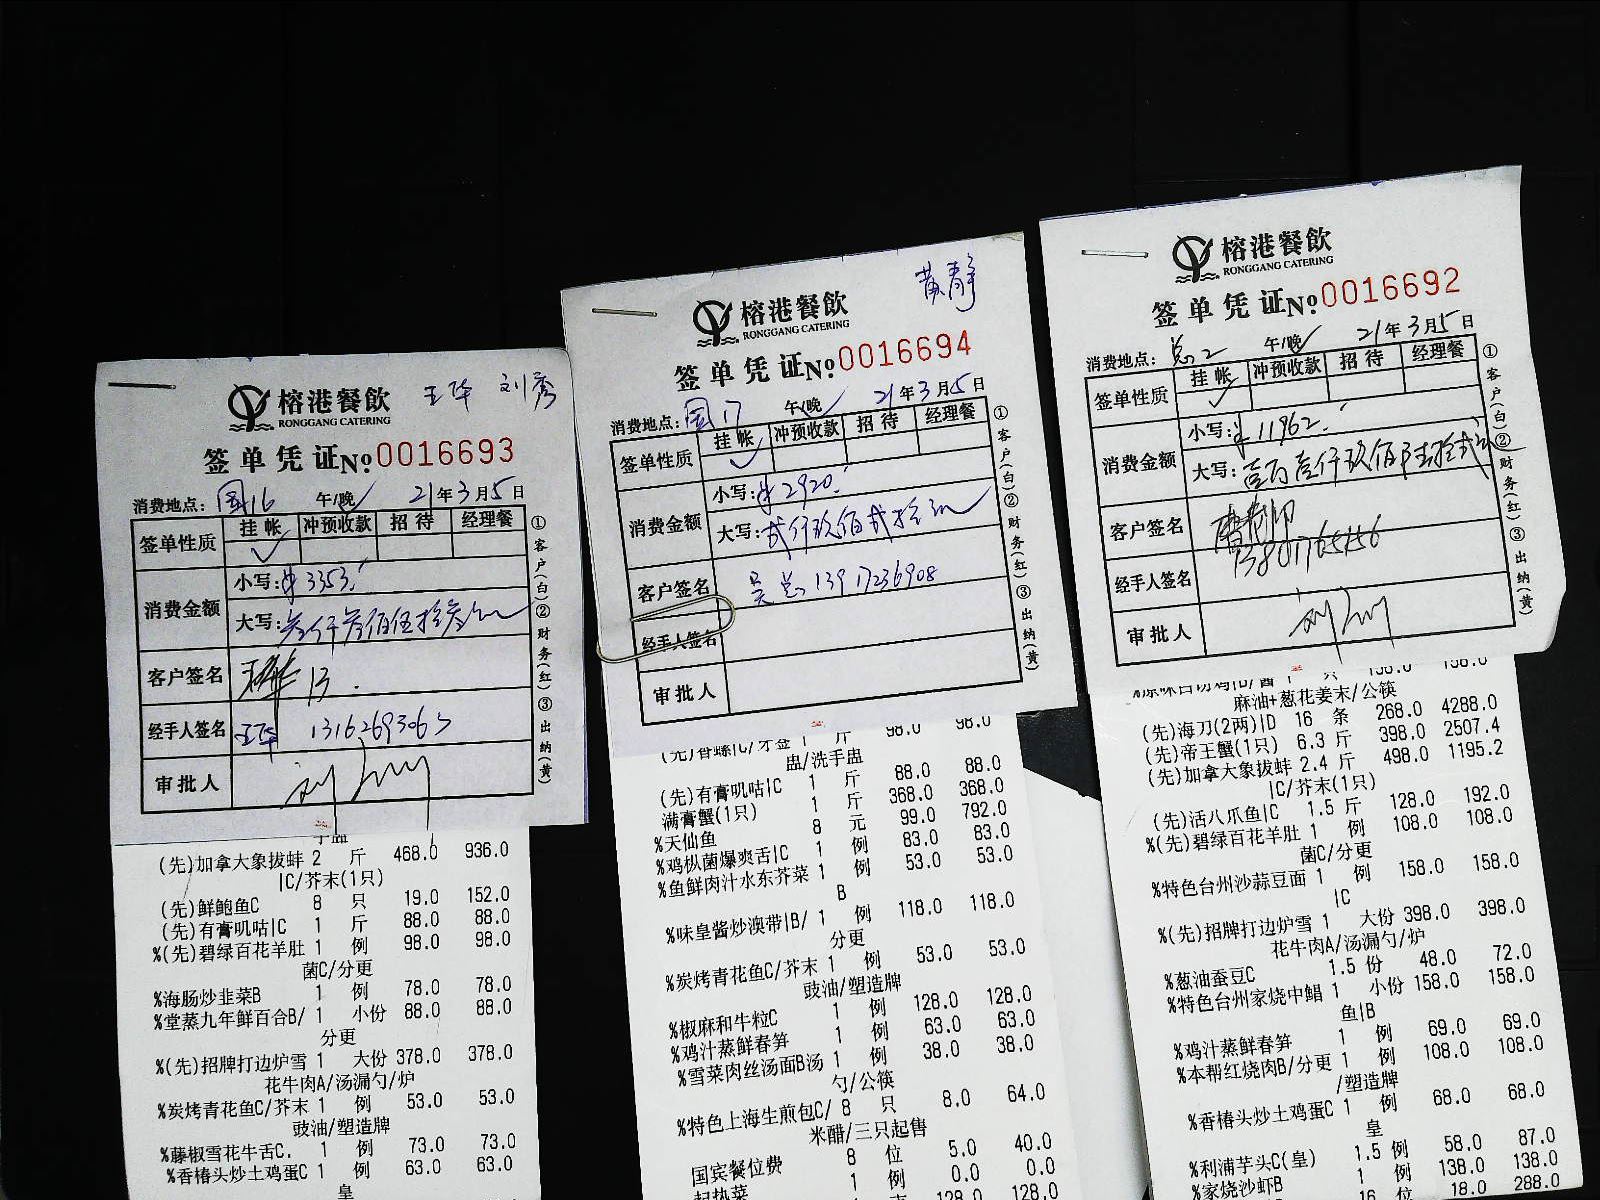 王华 刘秀
榕港餐飲
RONGGANG CATERING
签单凭证№0016693
消费地点：国16 午/晚 21年3月5日
签单性质 挂帐 冲预收款 招待 经理餐
消费金额
小写：¥3353.
大写：叁仟叁佰伍拾叁元
客户签名
经手人签名 王华
审批人
①客户(白)②财务(红)③出纳(黄)
(先)加拿大象拔蚌 2 斤 468.0 936.0
|C/芥末(1只)
(先)鲜鲍鱼C 8 只 19.0 152.0
(先)有膏叽咕|C 1 斤 88.0 88.0
%(先)碧绿百花羊肚 1 例 98.0 98.0
菌C/分更
%海肠炒韭菜B 1 例 78.0 78.0
%堂蒸九年鲜百合B/ 1 小份 88.0 88.0
分更
%(先)招牌打边炉雪 1 大份 378.0 378.0
花牛肉A/汤漏勺/炉
%炭烤青花鱼C/芥末 1 例 53.0 53.0
豉油/塑造牌
%藤椒雪花牛舌C. 1 例 73.0 73.0
%香椿头炒土鸡蛋C 1 例 63.0 63.0
皇
黄静
榕港餐飲
RONGGANG CATERING
签单凭证№0016694
消费地点：国17 午/晚 21年3月5日
签单性质 挂帐 冲预收款 招待 经理餐
消费金额
小写：¥2920.
大写：贰仟玖佰贰拾元
客户签名 吴总 13917236908
经手人签名
审批人
①客户(白)②财务(红)③出纳(黄)
(先)香螺|C/牙签 1 斤 98.0 98.0
盅/洗手盅
(先)有膏叽咕|C 1 斤 88.0 88.0
满膏蟹(1只) 1 斤 368.0 368.0
%天仙鱼 8 元 99.0 792.0
%鸡枞菌爆爽舌|C 1 例 83.0 83.0
%鱼鲜肉汁水东芥菜 1 例 53.0 53.0
B
%味皇酱炒澳带|B/ 1 例 118.0 118.0
分更
%炭烤青花鱼C/芥末 1 例 53.0 53.0
豉油/塑造牌
%椒麻和牛粒C 1 例 128.0 128.0
%鸡汁蒸鲜春笋 1 例 63.0 63.0
%雪菜肉丝汤面B汤 1 例 38.0 38.0
勺/公筷
%特色上海生煎包C/ 8 只 8.0 64.0
米醋/三只起售
国宾餐位费 8 位 5.0 40.0
起热菜 1 例 0.0 0.0
128.0 128.0
榕港餐飲
RONGGANG CATERING
签单凭证№0016692
消费地点：总2 午/晚 21年3月5日
签单性质 挂帐 冲预收款 招待 经理餐
消费金额
小写：¥11962.
大写：壹万壹仟玖佰陆拾贰元
客户签名
经手人签名
审批人
①客户(白)②财务(红)③出纳(黄)
麻油+葱花姜末/公筷
(先)海刀(2两)|D 16 条 268.0 4288.0
(先)帝王蟹(1只) 6.3 斤 398.0 2507.4
(先)加拿大象拔蚌 2.4 斤 498.0 1195.2
|C/芥末(1只)
(先)活八爪鱼|C 1.5 斤 128.0 192.0
%(先)碧绿百花羊肚 1 例 108.0 108.0
菌C/分更
%特色台州沙蒜豆面 1 例 158.0 158.0
|C
%(先)招牌打边炉雪 1 大份 398.0 398.0
花牛肉A/汤漏勺/炉
%葱油蚕豆C 1.5 份 48.0 72.0
%特色台州家烧中鲳 1 小份 158.0 158.0
鱼|B
%鸡汁蒸鲜春笋 1 例 69.0 69.0
%本帮红烧肉B/分更 1 例 108.0 108.0
/塑造牌
%香椿头炒土鸡蛋C 1 例 68.0 68.0
皇
%利浦芋头C(皇) 1.5 例 58.0 87.0
%家烧沙虾B 1 例 138.0 138.0
16 位 18.0 288.0